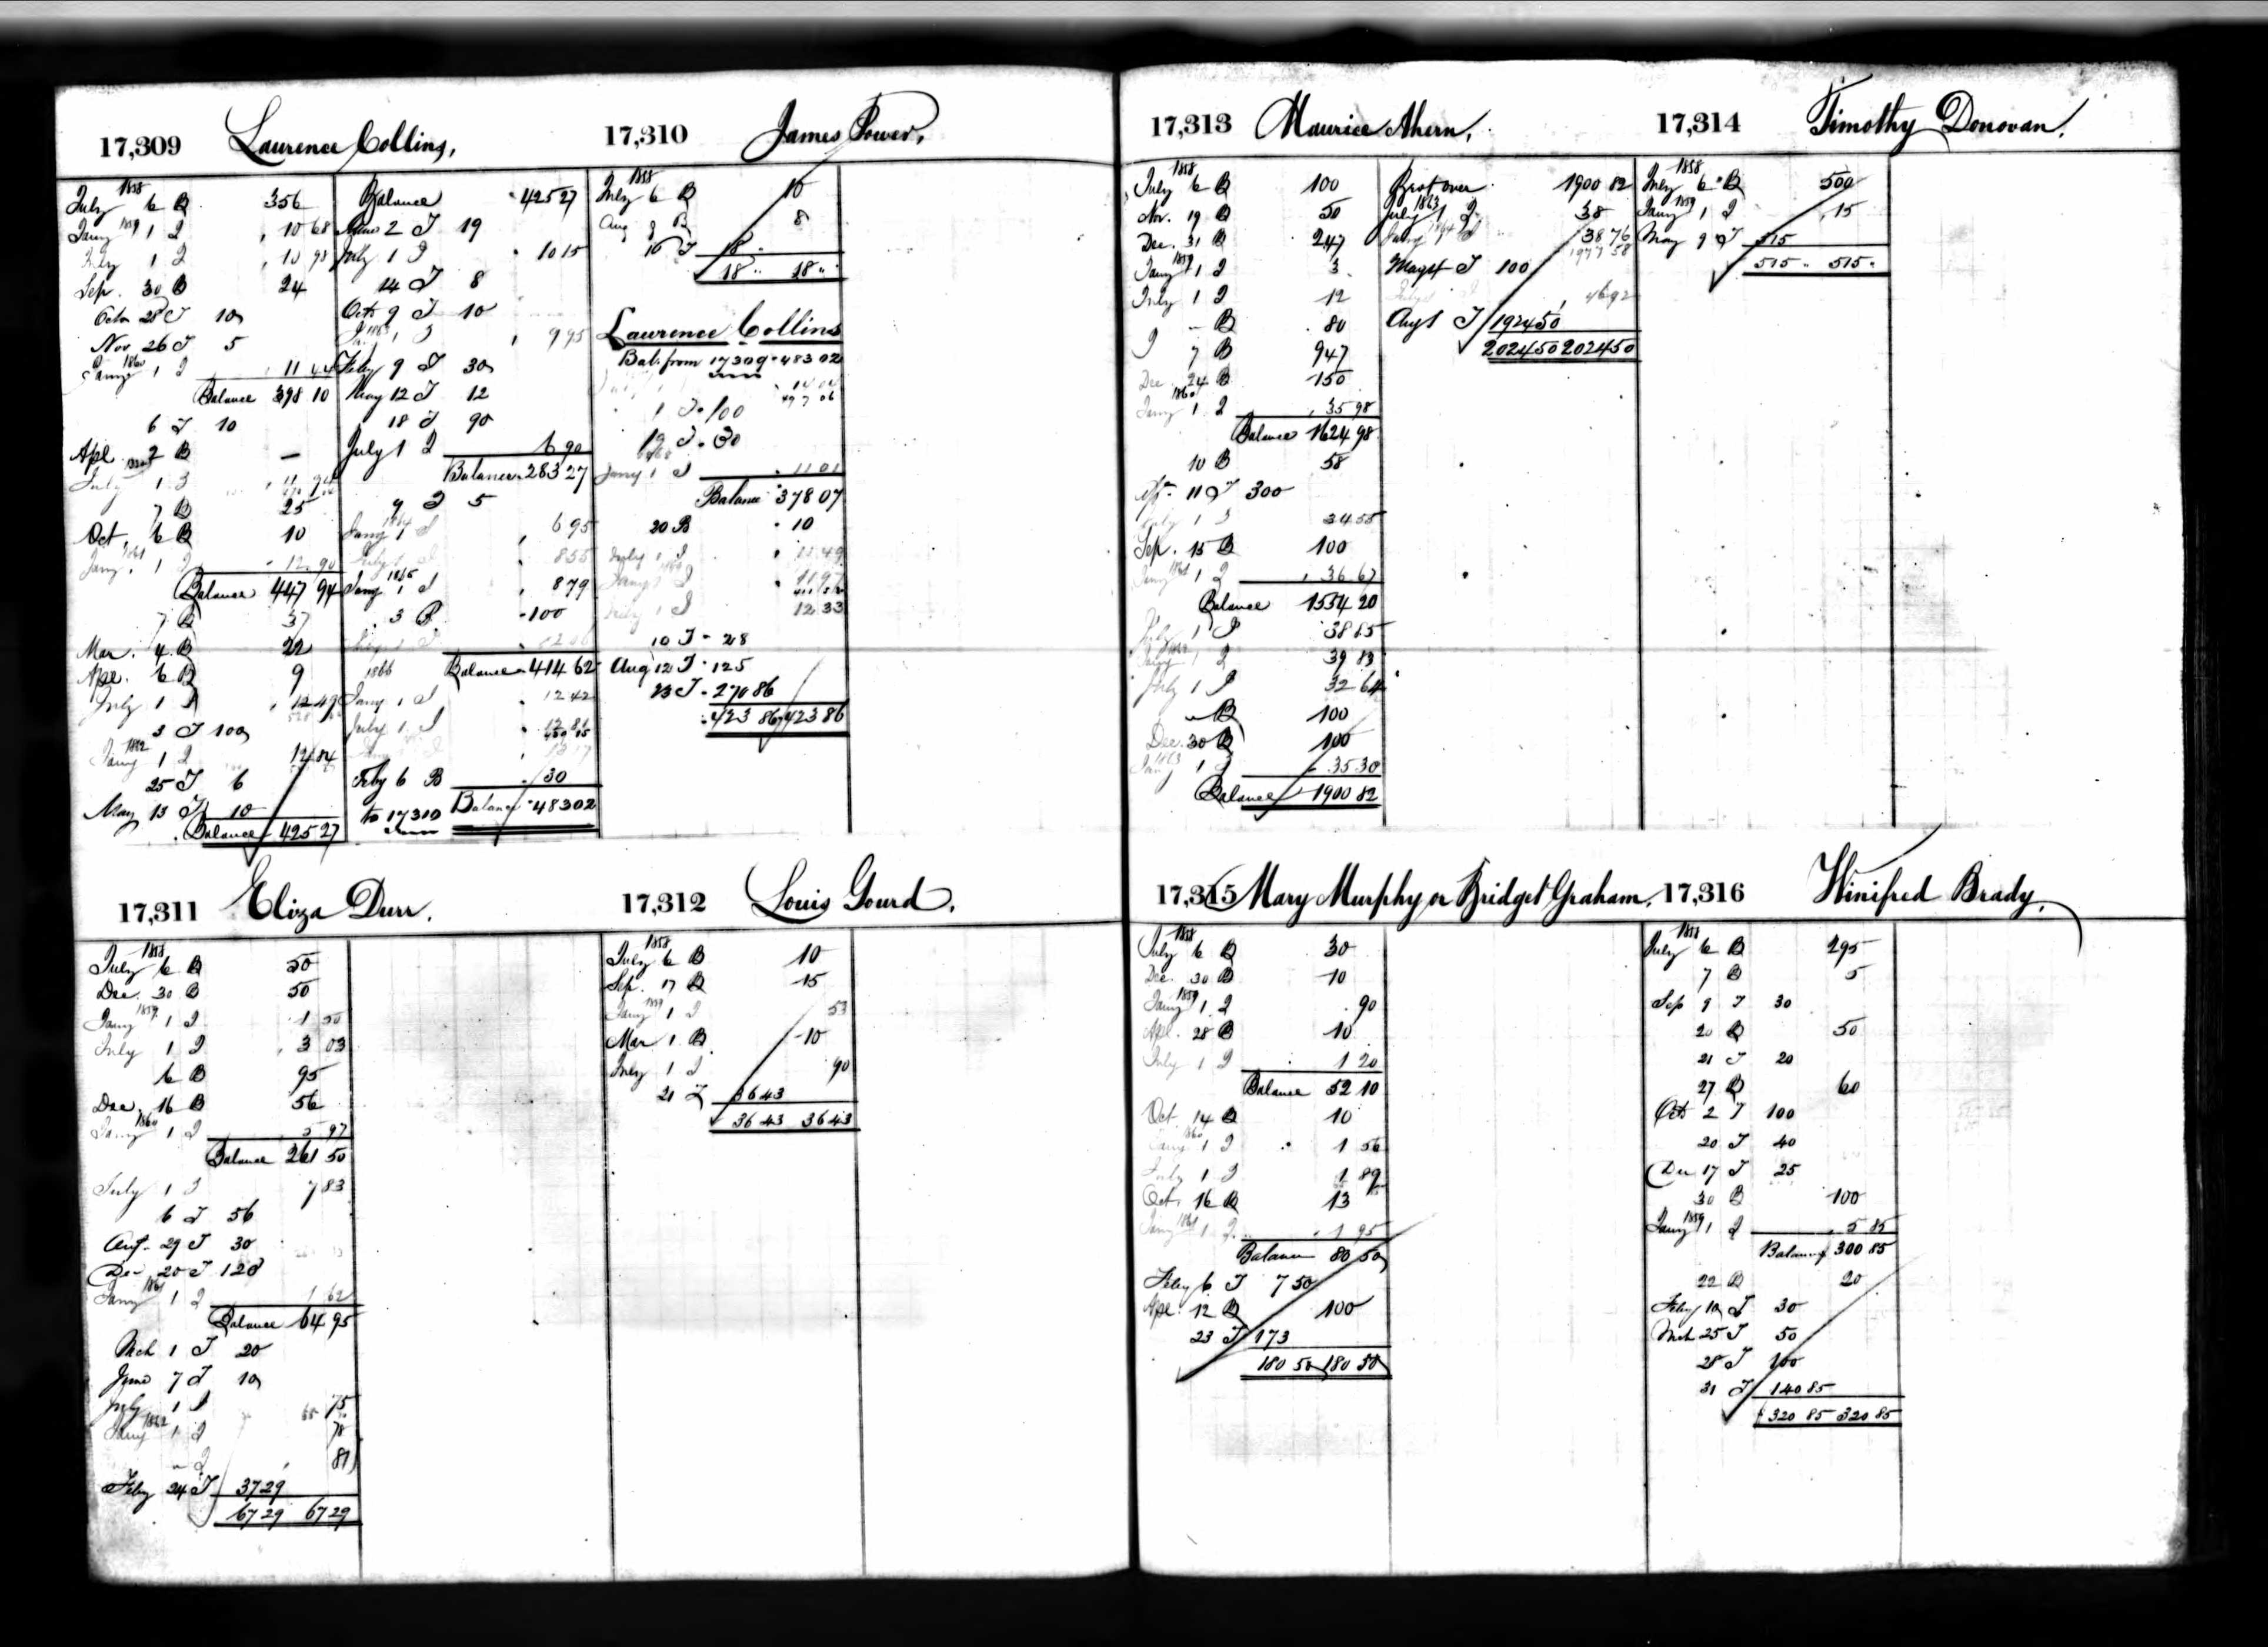 17,309 Laurence Collins,
1858
July 6 B 356
Jany 1859 1 I 10 68
July 1 I 10 98
Sep. 30 B 24
Octo 28 T 10
Nov 26 T 5
Jany 1860 1 I 11 44
Balance 398 10
6 T 10
Apl 2 B —
July 1 I
7 B 25
Oct. 6 B 10
Jany. 1861 1 I 12 90
Balance 447 94
7 B 37
Mar. 4 B 22
Apl. 6 B 9
July 1 I 12 49
3 T 100
Jany 1862 1 I 12 84
25 T 6
May 13 T 10
Balance 425 27
Balance 425 27
June 2 T 19
July 1 I 10 15
14 T 8
Octo 9 T 10
Jany 1863 1 I 9 95
Feby 9 T 30
May 12 T 12
18 T 90
July 1 I 6 90
Balance 283 27
9 T 5
Jany 1864 1 I 6 95
July 1 I 8 55
Jany 1865 1 I 8 79
3 B 100
July 1 I
Balance 414 62
1866
Jany 1 I 12 42
July 1 I 12 81
Feby 6 B 30
to 17310 Balance 483 02
17,310 James Power,
1858
July 6 B 10
Aug 9 B 8
10 T 18
18 " 18 "
Laurence Collins
Bal. from 17309 483 02
14 04
497 06
1 T 100
19 T 30
1868
Jany 1 I 11 01
Balance 378 07
20 B 10
July 1 I 11 49
Jany 1 I 11 97
July 1 I 12 33
10 T 28
Aug 12 T 125
23 T 270 86
423 86 423 86
17,311 Eliza Durr.
1858
July 6 B 50
Dec. 30 B 50
Jany 1859 1 I 1 50
July 1 I 3 03
6 B 95
Dec. 16 B 56
Jany 1860 1 I 5 97
Balance 261 50
July 1 I 7 83
6 T 56
Aug. 29 T 30
Dec 20 T 120
Jany 1861 1 I 1 62
Balance 64 95
Mch 1 T 20
June 7 T 10
July 1 I 75
Jany 1862 1 I 78
" I 81
Feby 24 T 37 29
67 29 67 29
17,312 Louis Gourd.
1858
July 6 B 10
Sep. 17 B 15
Jany 1859 1 I 53
Mar 1 B 10
July 1 I 90
21 T 36 43
36 43 36 43
17,313 Maurice Ahern,
1858
July 6 B 100
Nov. 19 B 50
Dec. 31 B 247
Jany 1859 1 I 3
July 1 I 12
" B 80
7 B 947
Dec 24 B 150
Jany 1860 1 I 35 98
Balance 1624 98
10 B 58
11 T 300
July 1 I 34 55
Sep. 15 B 100
Jany 1861 1 I 36 67
Balance 1534 20
July 1 I 38 85
Jany 1862 1 I 39 83
July 1 I 32 64
" B 100
Dec. 30 B 100
Jany 1863 1 I 35 30
Balance 1900 82
Brot over 1900 82
July 1863 1 I 38
Jany 1864 1 I 38 76
1977 58
May 4 T 100
July 1 I 46 92
Aug 1 T 1924 50
2024 50 2024 50
17,314 Timothy Donovan.
1858
July 6 B 500
Jany 1859 1 I 15
May 9 T 515
515 " 515 "
17,315 Mary Murphy or Bridget Graham.
1858
July 6 B 30
Dec. 30 B 10
Jany 1859 1 I 90
Apl. 28 B 10
July 1 I 1 20
Balance 52 10
Oct. 14 B 10
Jany 1860 1 I 1 56
July 1 I 1 89
Oct. 16 B 13
Jany 1861 1 I 1 95
Balance 80 50
Feby 6 T 7 50
Apl. 12 B 100
23 T 173
180 50 180 50
17,316 Winifred Brady,
1858
July 6 B 295
7 B 5
Sep 9 T 30
20 B 50
21 T 20
27 B 60
Oct 2 T 100
20 T 40
Dec 17 T 25
30 B 100
Jany 1859 1 I 5 85
Balance 300 85
22 B 20
Feby 10 T 30
Mch 25 T 50
28 T 100
31 T 140 85
320 85 320 85